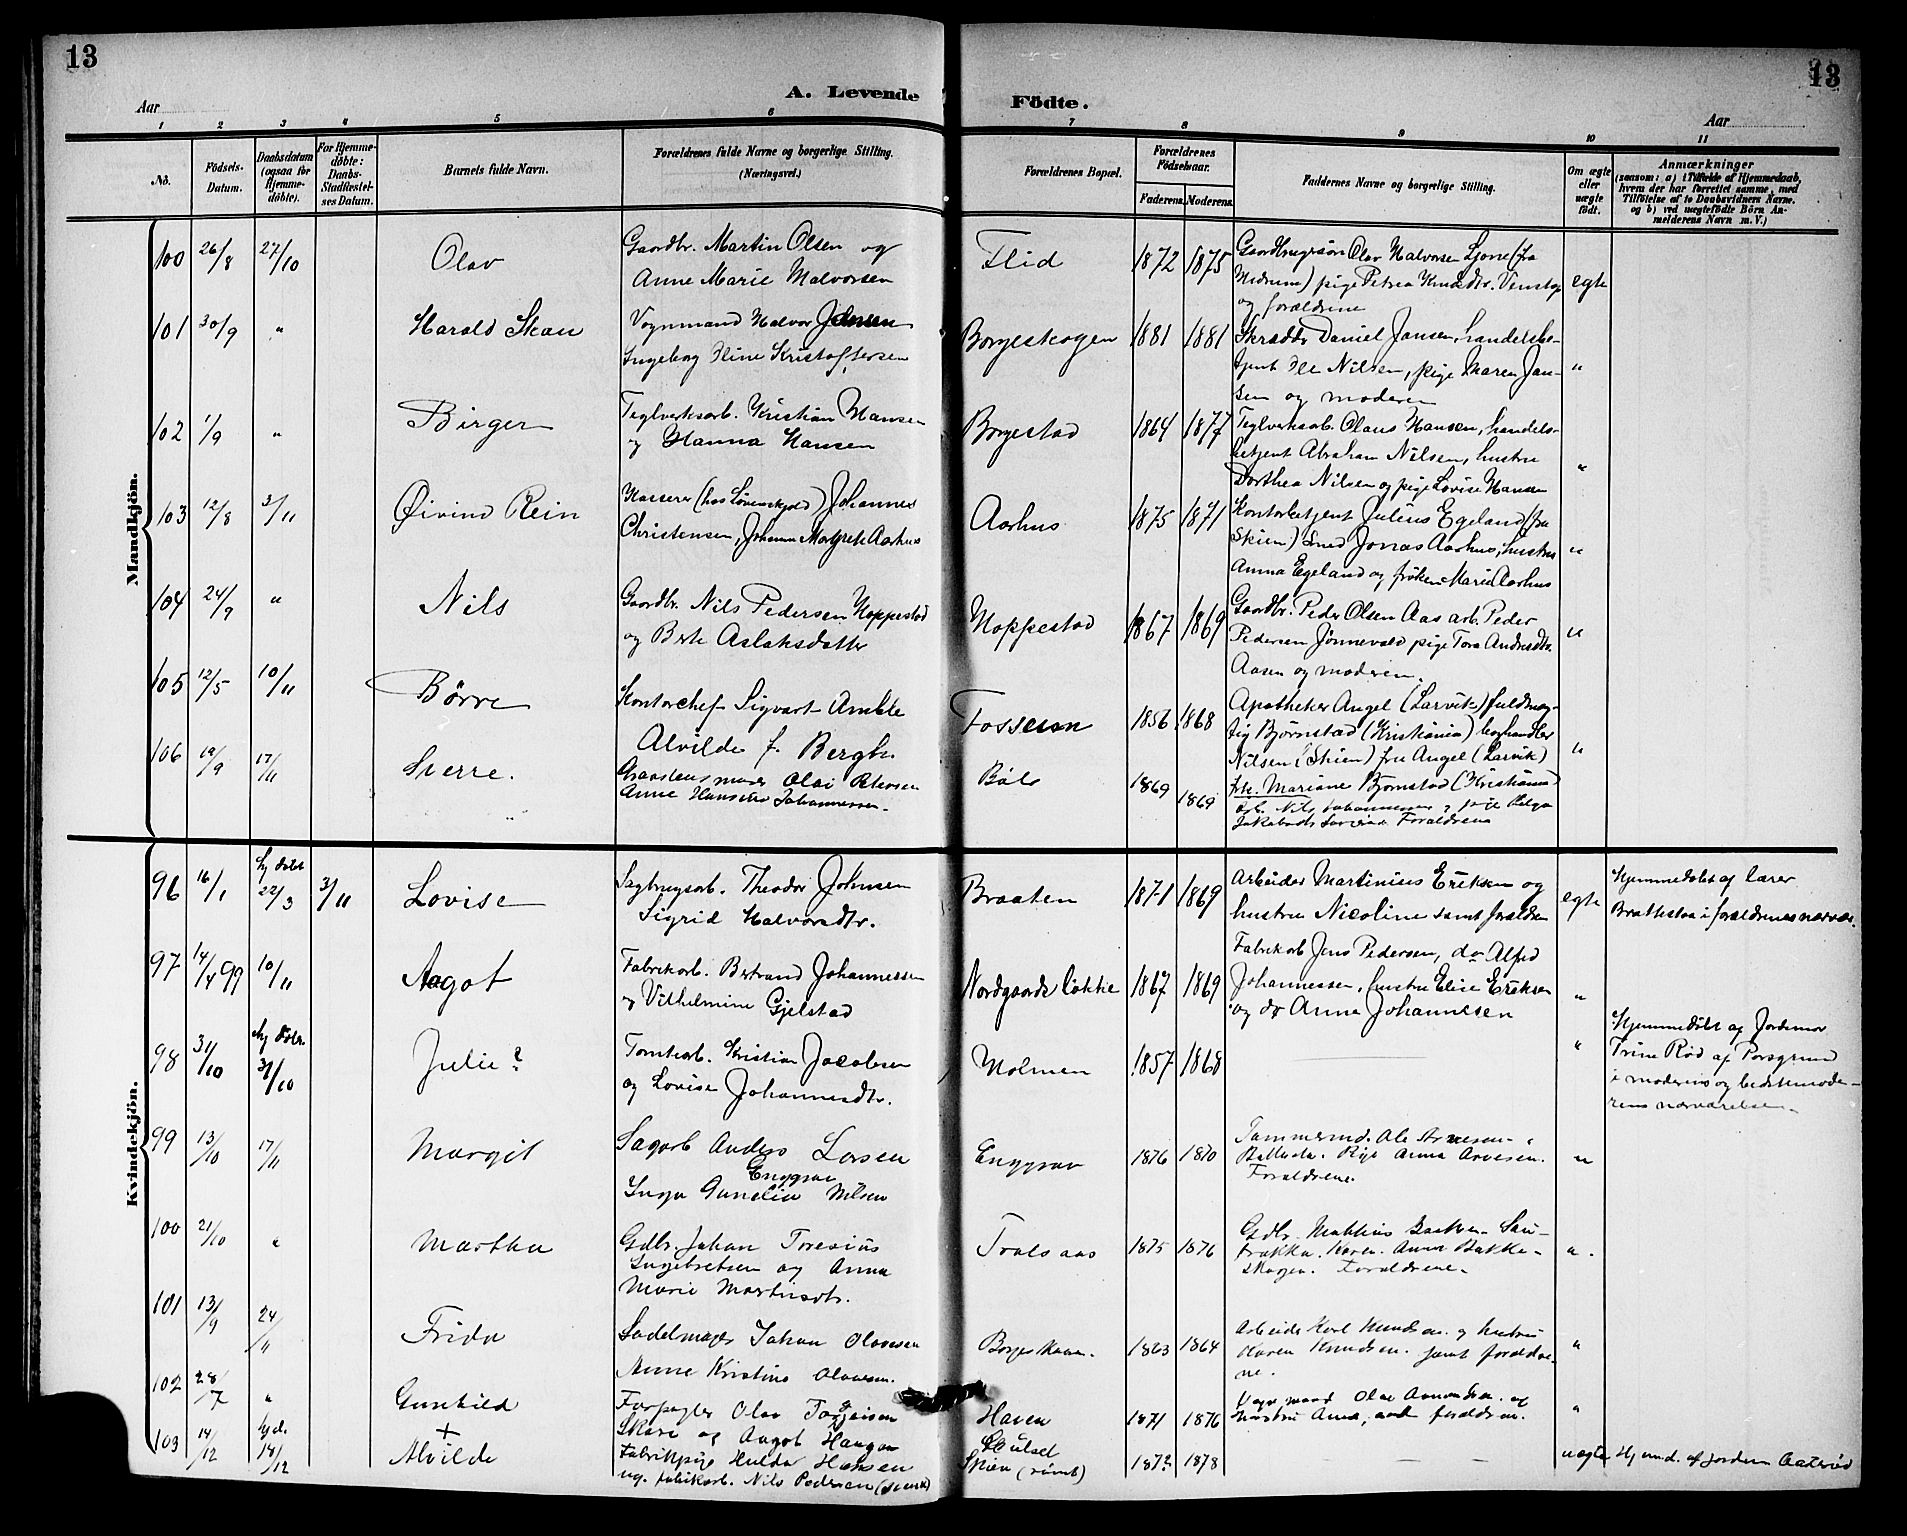 13
13
A. Levende Födte.
Aar
Aar
1 2 3 4 5 6 7 8 9 10 11
No.
Födsels-Datum.
Daabsdatum (ogsaa for Hjemme-döbte).
For Hjemme-döbte: Daabs-Stadfæstel-ses Datum.
Barnets fulde Navn.
Forældrenes fulde Navne og borgerlige Stilling.
(Næringsvei.)
Forældrenes Bopæl.
Forældrenes Födselsaar.
Faderens. Moderens.
Faddernes Navne og borgerlige Stilling.
Om ægte eller uægte födt.
Anmærkninger
(saasom: a) i Tilfælde af Hjemmedaab, hvem der har forrettet samme, med Tilföielse af to Daabsvidners Navne, og b) ved uægtefödte Börn An-melderens Navn m. V.)
Mandkjön.
100 26/8 27/10 Olav
Gaardbr. Martin Olsen og
Anne Marie Halvorsen
Flid 1872 1875
Olav Halvorsen
pige Petrea
og forældrene
egte
101 30/9 " Harald Skau
Vognmand Halvor Jensen
Ingeborg Kristoffersen
Borgeskogen 1881 1881
Daniel Jansen, handelsbe-
tjent Nilsen, pige Maren Jan-
sen og moderen
"
102 1/9 " Birger
Teglverksarb. Kristian Hansen
og Hanna Hansen
Borgestad 1864 1877
Teglverksarb. Olaus Hansen, handels-
betjent Abraham Nilsen, hustru
Dorthea Nilsen og pige Lovise Hansen
"
103 12/8 3/11 Øivind Rein
Kasserer (hos Løvenskjold) Johannes
Christensen, Johanne Margrete Aarhus
Aarhus 1875 1871
Kontorbetjent Julius Egeland (fra
Skien) Smed Jonas Aarhus, hustru
Anna Egeland og frøken Marie Aarhus
"
104 24/9 " Nils
Gaardbr. Nils Pedersen Hoppestad
og Berte Aslaksdatter
Hoppestad 1867 1869
Gaardbr. Peder Olsen Aas arb. Peder
Pedersen Jønnevald pige Tora Andersdtr.
Aasen og moderen.
"
105 12/5 10/11 Børre
Kontorchef Sigvart Amble
Alvilde f. Bergh.
Fossum 1856 1868
Apotheker Angel (Larvik) fuldmæg-
tig Bjørnstad (Kristiania) boghandler
Nilsen (Skien) fru Angel (Larvik)
frk. Mariane Bjørnstad (Kristiania)
"
106 19/9 17/11 Sverre.
Olai Petersen
Anne Johannessen
Bøle 1869 1869
Arb. Nils Johannessen og pige Helga
Forældrene
Kvindekjön.
96 16/1 hj. døbt 22/3 3/11 Lovise
Sagbrugsarb. Theodor Johnsen
Sigrid Halvorsdtr.
Braaten 1871 1869
Arbeider Martinius Eriksen og
hustru Nicoline samt forældre
egte
Hjemmedøbt af lærer
Brattestaa i forældrenes nærvær.
97 14/4 99 10/11 Aagot
Fabrikarb. Bertrand Johannessen
og Vilhelmine Gjelstad
Nordgaards løkke 1867 1869
Fabrikarb Jens Pedersen, do Alfred
Johannessen, hustru Elise Eriksen
og do Anna Johannesen
"
98 31/10 hj døbt. 31/10 Julie?
Tomtearb. Kristian Jacobsen
og Lovise Johannesdtr.
Holmen 1857 1868
"
Hjemmedøbt af Jordemor
Trine Rød af Porsgrund
i moderens og bedstemode-
rens nærværelse.
99 13/10 17/11 Margit
Sagarb Anders Larsen
Enggrav
Inga Gunelia Nilsen
Enggrav 1876 1870
Tømmermd. Ole Arnesen
Pige Anna Arnesen.
Forældrene.
"
100 21/10 " Martha
Gdbr. Johan Torenius
Ingebretsen og Anna
Marie Martinsdtr.
Traalsaas 1875 1876
Gdbr. Mathias Bakken
Karen Anna Bakke-
skogen. Forældrene.
"
101 13/9 24/11 Frida
Sadelmager Johan Olavesen
Anne Kristine Olavesen.
Borgeskogen. 1863 1864
Arbeider Karl Knudsen og hustru
Karen Knudsen. samt foræld-
ne.
"
102 28/7 " Gunhild
Forpagter Olav Torjeisen
Skare og Aagot Haugan
Haven 1871 1876
hustru Anna, samt forældrene.
"
103 14/12 hjd. 14/12 + Alvilde
Fabrikpige Hulda Hansen
ug. fabrikarb. Nils Pedersen (svensk)
Skien (rømt) 187? 1878
uægte
Hjemd. af jordem Aaterød